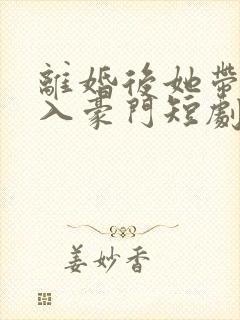 離婚後她帶
入豪門短劇
姜妙香